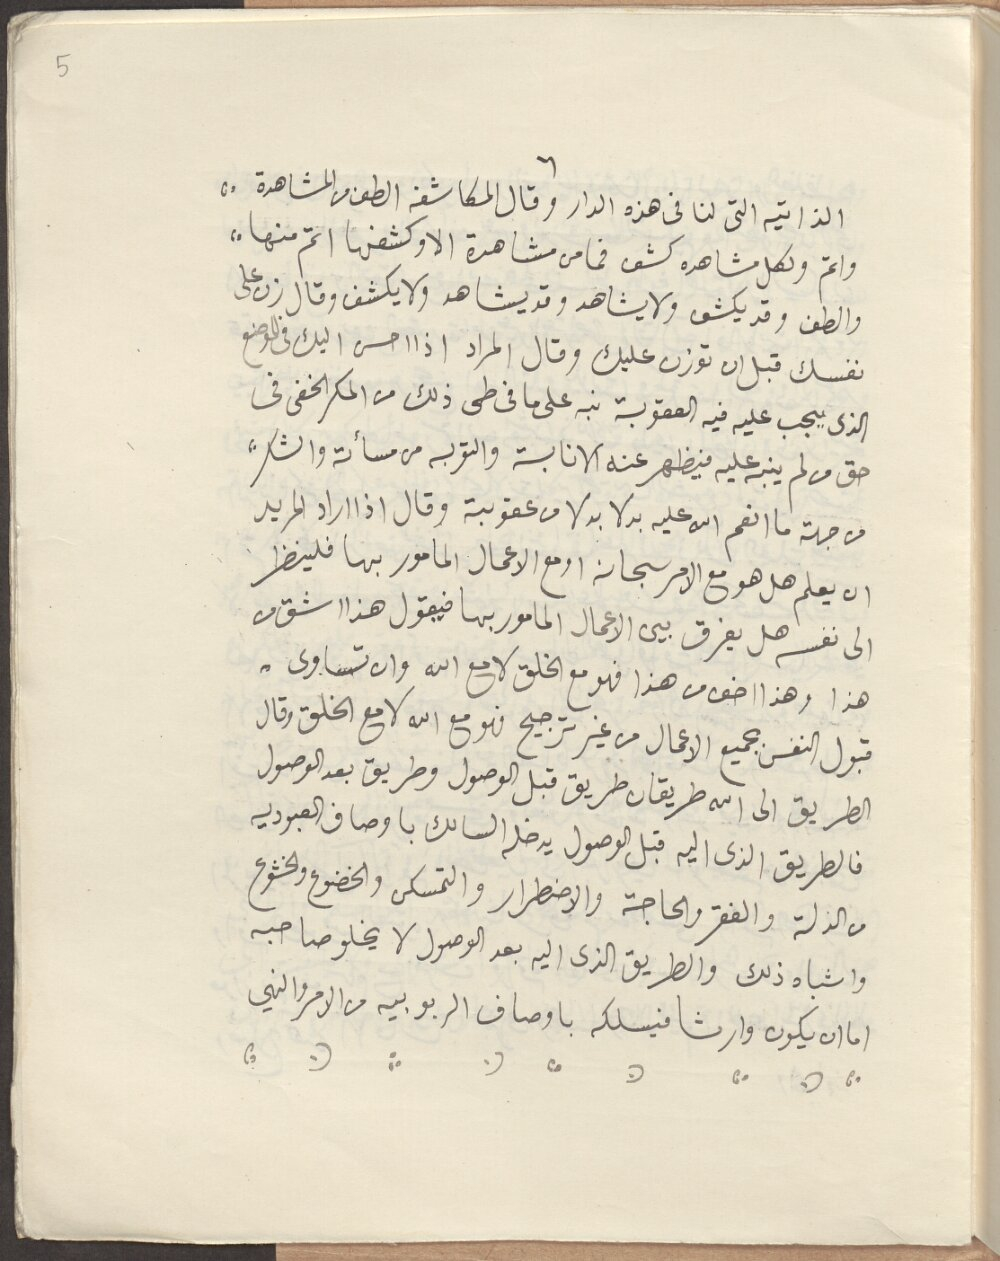 5
٦
الذاتيه التى لنا فى هذه الدار وقال المكاشفه الطف من المشاهدة
واتم ولكل مشاهده كشف فما من مشاهدة الا وكشفها اتم منها
والطف وقد يكشف ولا يشاهد وقد يشاهد ولا يكشف وقال زن على
نفسك قبل ان توزن عليك وقال المراد اذا احسن اليك فى الموضع
الذى يجب عليه فيه العقوبة نبه على ما فى طى ذلك من المكر الخفى فى
حق من لم ينبه عليه فيظهر عنه الانابة والتوبه من مسأته والشكر
من جهة ما انعم الله عليه بدلا بدلا من عقوبية وقال اذا اراد المريد
ان يعلم هل هو مع الامر سبحانه او مع الاعمال المامور بها فلينظر
الى نفسه هل يفرق بين الاعمال المامور بها فيقول هذا اشق من
هذا وهذا اخف من هذا فهو مع الخلق لا مع الله وان تساوى
قبول النفس بجميع الاعمال من غير ترجيح فهو مع الله لا مع الخلق وقال
الطريق الى الله طريقان طريق قبل الوصول وطريق بعد الوصول
فالطريق الذى اليه قبل الوصول يدخله السالك باوصاف العبوديه
من الذلة والفقر والحاجة والاضطرار والتمسكن والخضوع والخشوع
واشباه ذلك والطريق الذى اليه بعد الوصول لا يخلو صاحبه
اما ان يكون وارثا فيسلكه باوصاف الربوبيه من الامر والنهي